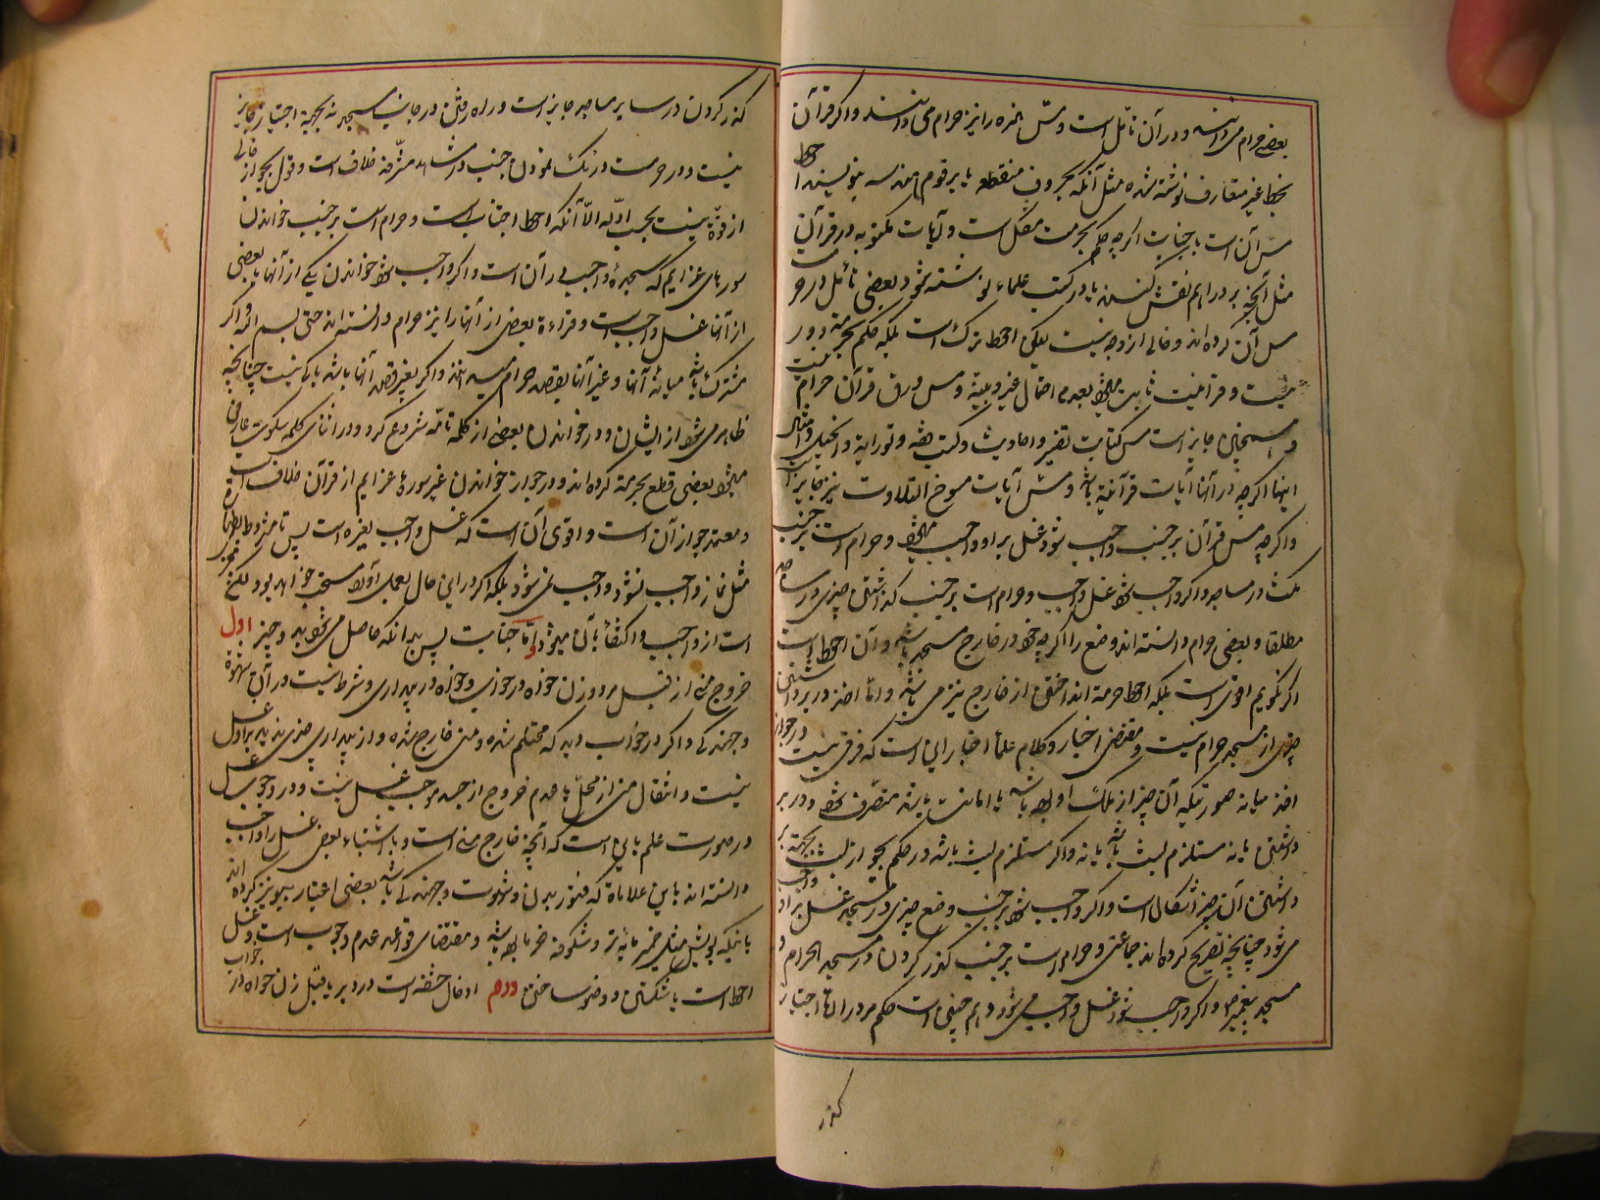 بعضی حرام می‌دانند و در آن تامل است و مس همزه را نیز حرام می‌دانند و اگر قرآن
بخط غیر متعارف نوشته شده مثل آنکه بحروف منقطعه یا برقوم هندسه بنویسند احوط
مس آن است با جنابت اگر چه حکم بحرمت مشکل است و آیات مکتوبه در قرآن
مثل آنچه بر دراهم نقش کنند یا در کتب علماء نوشته شود بعضی تامل در حرمت
مس آن کرده‌اند و خالی از وجه نیست لیکن احوط ترک است بلکه حکم بحرمت دور
نیست و قرآنیت ثابت میشود بعدم احتمال غیر و بینه و مس ورق قرآن حرام نیست
و همچنین جایز است مس کتابت تفسیر و احادیث و کتب فقه و توراة و انجیل و امثال
اینها اگر چه در آنها آیات قرآنیه باشد و مس آیات منسوخ التلاوت نیز جایز است
و اگر چه مس قرآن بر جنب واجب شود غسل بر او واجب میشود و حرام است بر جنب
مکث در مساجد و اگر واجب شود غسل واجب و حرام است بر جنب گذاشتن چیزی در مساجد
مطلقا و بعضی حرام دانسته‌اند وضع را اگر چه خود در خارج مسجد باشد و آن احوط است
اگر نگوییم اقوی است بلکه احوط حرمة انداختن از خارج نیز می باشد و اما اخذ و برداشتن
چیزی از مسجد حرام نیست و مقتضی اخبار و کلام علماء اخیار این است که فرقی نیست در جواز
اخذ میانه صورتیکه آن چیز از ملک او بوده باشد یا امانت باشد متصرف شود و در بر
داشتن یا نه مستلزم لبث باشد یا نه و اگر مستلزم لبث باشد در حکم بجواز لبث بجهة بر
داشتن آن چیز اشکال است و اگر واجب شود بر جنب وضع چیزی در مسجد غسل بر او واجب
می‌شود چنانچه تصریح کرده‌اند جماعتی و حرام است بر جنب گذر کردن در مسجد الحرام و
مسجد پیغمبر ص و اگر واجب شود غسل واجب می شود و هم چنین است حکم مرور اما اجتیاز
گذر
گذر کردن در سایر مساجد جایز است و راه رفتن در جانب مسجد نه بجهة اجتیاز جایز
نیست و در حرمت درنگ نمودن جنب در مشاهد مشرفه خلاف است و قول بجواز خالی
از قوة نیست بحسب ادله الا آنکه احوط اجتناب است و حرام است بر جنب خواندن
سورهای عزایم که سجدهٔ واجب در آن است و اگر واجب شود خواندن یکی از آنها یا بعضی
از آنها غسل واجب است و قراءة بعضی از آنها را نیز حرام دانسته اند حتی بسم الله و اگر
مشترک باشد میانهٔ آنها و غیر آنها بقصد حرام میدانند و اگر بغیر قصد آنها باشد باکی نیست چنانچه
ظاهر می شود از ایشان و در خواندن بعضی از کلمه تامه شروع کرد و در اثنای کلمه سکوت عارض
میشود بعضی قطع بحرمة کرده اند و در جواز خواندن غیر سورهٔ عزایم از قرآن خلاف است
و معتمد جواز آن است و اقوی آن است که غسل واجب لغیره است پس تا مشروط بطهارت
مثل نماز واجب نشود واجب نمی شود بلکه اگر در این حال بعمل آورد مستحب خواهد بود لکن مجزی
است از واجب و اکتفا بآن میشود و اما جنابت پس بدانکه حاصل می شود بدو چیز اول
خروج منی از قبل مرد و زن خواه در خواب و خواه در بیداری و شرط نیست در آن شهوة
و جهندگی و اگر در خواب دید که محتلم شده و منی خارج شده و از بیداری چیزی ندید بر او غسل
نیست و انتقال منی از محل با عدم خروج از جسد موجب غسل نیست و در وجوب غسل
در صورت علم باین است که آنچه خارج منی است و با اشتباه بعضی غسل را واجب
دانسته اند باین علامات که فتور بدن و شهوت و جهندگی باشد بعضی اعتبار ببو نیز کرده اند
باینکه بویش مثل خمیر مایه تر و شکوفه خرما بوده باشد و مقتضای قواعد عدم وجوب است و غسل
احوط است با شکستن و وضو ساختن دوم ادخال حشفه است در دبر یا قبل زن خواه در خواب